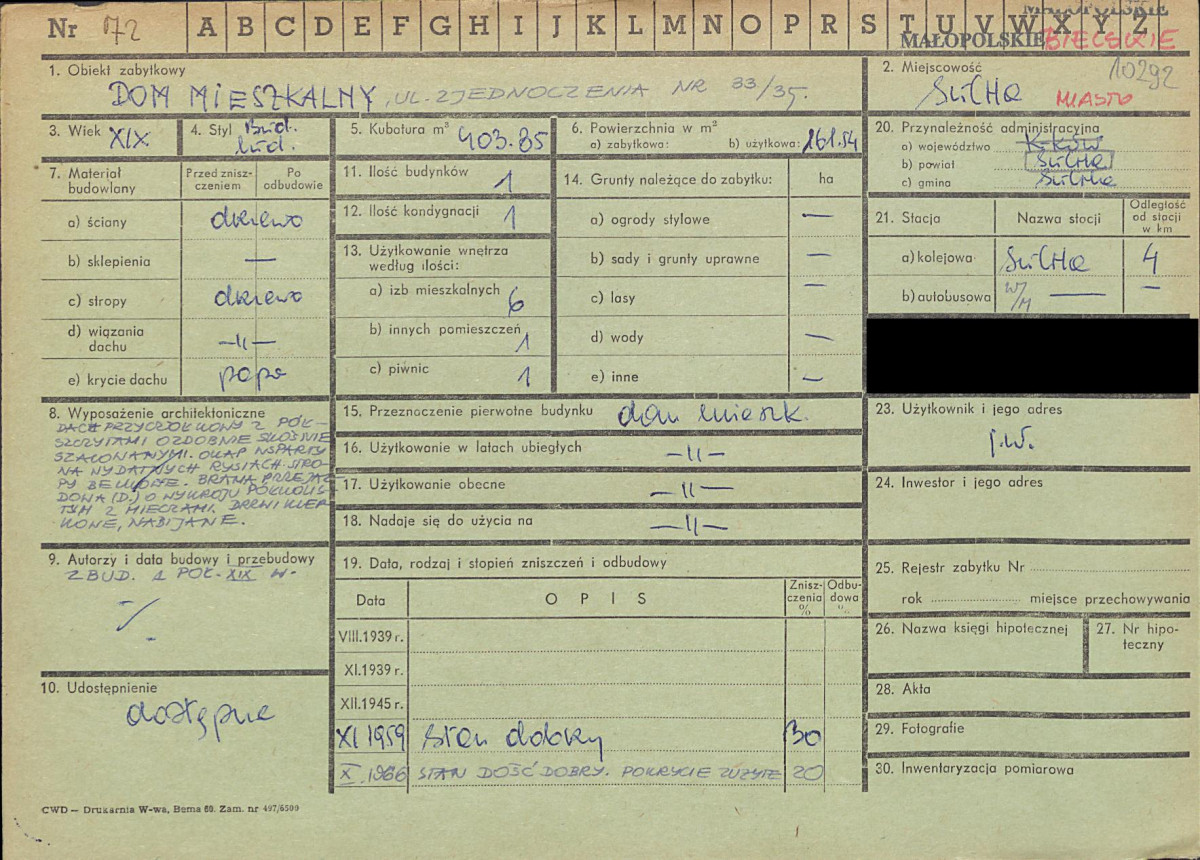 Nr 72 A B C D E F G H I J K L M N O P R S T U V W X Y Z
MAŁOPOLSKIE BIELSKIE
10292
1. Obiekt zabytkowy
DOM MIESZKALNY, UL. ZJEDNOCZENIA NR 33/35.
2. Miejscowość
SUCHA MIASTO
3. Wiek XIX
4. Styl Bud. lud.
5. Kubatura m³ 403.85
6. Powierzchnia w m²
a) zabytkowa: b) użytkowa: 161.54
7. Materiał budowlany
Przed zniszczeniem
Po odbudowie
a) ściany drzewo
b) sklepienia —
c) stropy drzewo
d) wiązania dachu —"—
e) krycie dachu papa
8. Wyposażenie architektoniczne
DACH PRZYCZÓŁKOWY Z PÓŁ-
SZCZYTAMI OZDOBNIE SKOŚNIE
SZALOWANYMI. OKAP WSPARTY
NA WYDATNYCH RYSIACH. STRO-
PY BELKOWE. BRAMA PRZEJAZ-
DOWA (D.) O WYKROJU PÓŁKOLIS-
TYM Z MIECZAMI. DRZWI KLEP-
KOWE, NABIJANE.
9. Autorzy i data budowy i przebudowy
ZBUD. 1 POŁ. XIX W.
10. Udostępnienie
dostępne
11. Ilość budynków 1
12. Ilość kondygnacji 1
13. Użytkowanie wnętrza według ilości:
a) izb mieszkalnych 6
b) innych pomieszczeń 1
c) piwnic 1
14. Grunty należące do zabytku: ha
a) ogrody stylowe —
b) sady i grunty uprawne —
c) lasy —
d) wody —
e) inne —
15. Przeznaczenie pierwotne budynku dom mieszk.
16. Użytkowanie w latach ubiegłych —"—
17. Użytkowanie obecne —"—
18. Nadaje się do użycia na —"—
19. Data, rodzaj i stopień zniszczeń i odbudowy
Data OPIS Zniszczenia % Odbudowa %
VIII.1939 r.
XI.1939 r.
XII.1945 r.
XI 1959 Stan dobry 30
X. 1966 STAN DOŚĆ DOBRY. POKRYCIE ZUŻYTE 20
20. Przynależność administracyjna
a) województwo Kraków
b) powiat SUCHA
c) gmina SUCHA
21. Stacja Nazwa stacji Odległość od stacji w km
a) kolejowa SUCHA 4
b) autobusowa W/M — —
23. Użytkownik i jego adres
j.w.
24. Inwestor i jego adres
25. Rejestr zabytku Nr
rok miejsce przechowywania
26. Nazwa księgi hipotecznej
27. Nr hipoteczny
28. Akta
29. Fotografie
30. Inwentaryzacja pomiarowa
CWD — Drukarnia W-wa, Bema 60. Zam. nr 497/6500